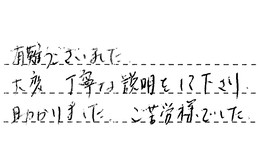 有難うございました
大変 丁寧な説明をして下さり
助かりました ご苦労様でした